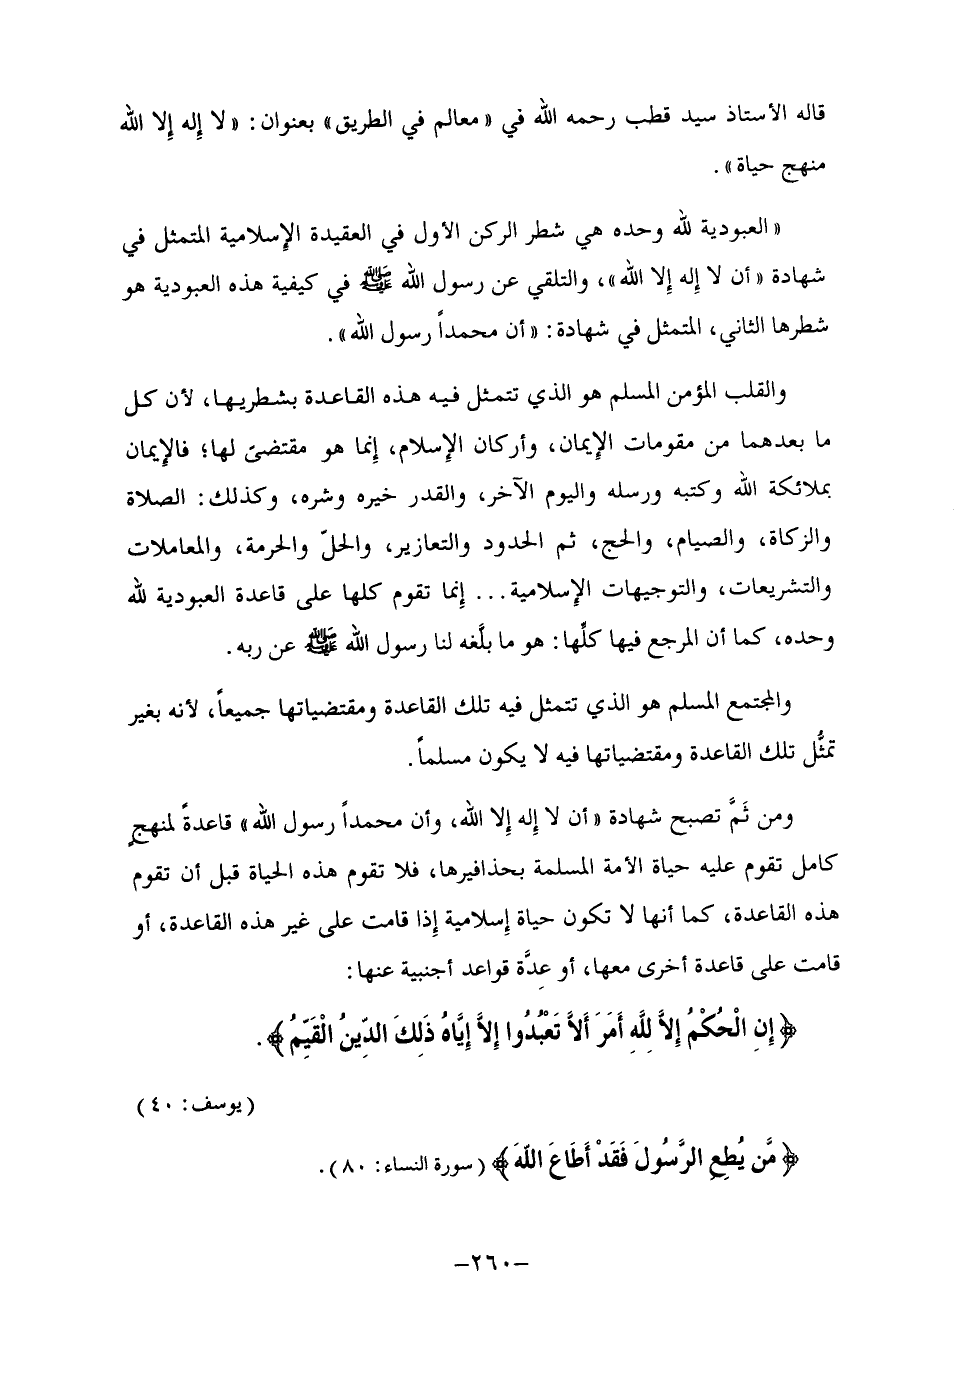 قاله الأستاذ سيد قطب رحمه الله في «معالم في الطريق» بعنوان: «لا إله إلا الله
منهج حياة».
«العبودية لله وحده هي شطر الركن الأول في العقيدة الإسلامية المتمثل في
شهادة «أن لا إله إلا الله»، والتلقي عن رسول الله ﷺ في كيفية هذه العبودية هو
شطرها الثاني، المتمثل في شهادة: «أن محمداً رسول الله».
والقلب المؤمن المسلم هو الذي تتمثل فيه هذه القاعدة بشطريها، لأن كل
ما بعدهما من مقومات الإيمان، وأركان الإسلام، إنما هو مقتضىً لها؛ فالإيمان
بملائكة الله وكتبه ورسله واليوم الآخر، والقدر خيره وشره، وكذلك: الصلاة
والزكاة، والصيام، والحج، ثم الحدود والتعازير، والحلّ والحرمة، والمعاملات
والتشريعات، والتوجيهات الإسلامية... إنما تقوم كلها على قاعدة العبودية لله
وحده، كما أن المرجع فيها كلِّها: هو ما بلَّغه لنا رسول الله ﷺ عن ربه.
والمجتمع المسلم هو الذي تتمثل فيه تلك القاعدة ومقتضياتها جميعاً، لأنه بغير
تمثُّل تلك القاعدة ومقتضياتها فيه لا يكون مسلماً.
ومن ثَمَّ تصبح شهادة «أن لا إله إلا الله، وأن محمداً رسول الله» قاعدةً لمنهجٍ
كامل تقوم عليه حياة الأمة المسلمة بحذافيرها، فلا تقوم هذه الحياة قبل أن تقوم
هذه القاعدة، كما أنها لا تكون حياة إسلامية إذا قامت على غير هذه القاعدة، أو
قامت على قاعدة أخرى معها، أو عِدَّة قواعد أجنبية عنها:
﴿إِنِ الْحُكْمُ إِلاَّ لِلَّهِ أَمَرَ أَلاَّ تَعْبُدُوا إِلاَّ إِيَّاهُ ذَلِكَ الدِّينُ الْقَيِّمُ﴾.
(يوسف: ٤٠)
﴿مَّن يُطِعِ الرَّسُولَ فَقَدْ أَطَاعَ اللَّهَ﴾ (سورة النساء: ٨٠).
-٢٦٠-